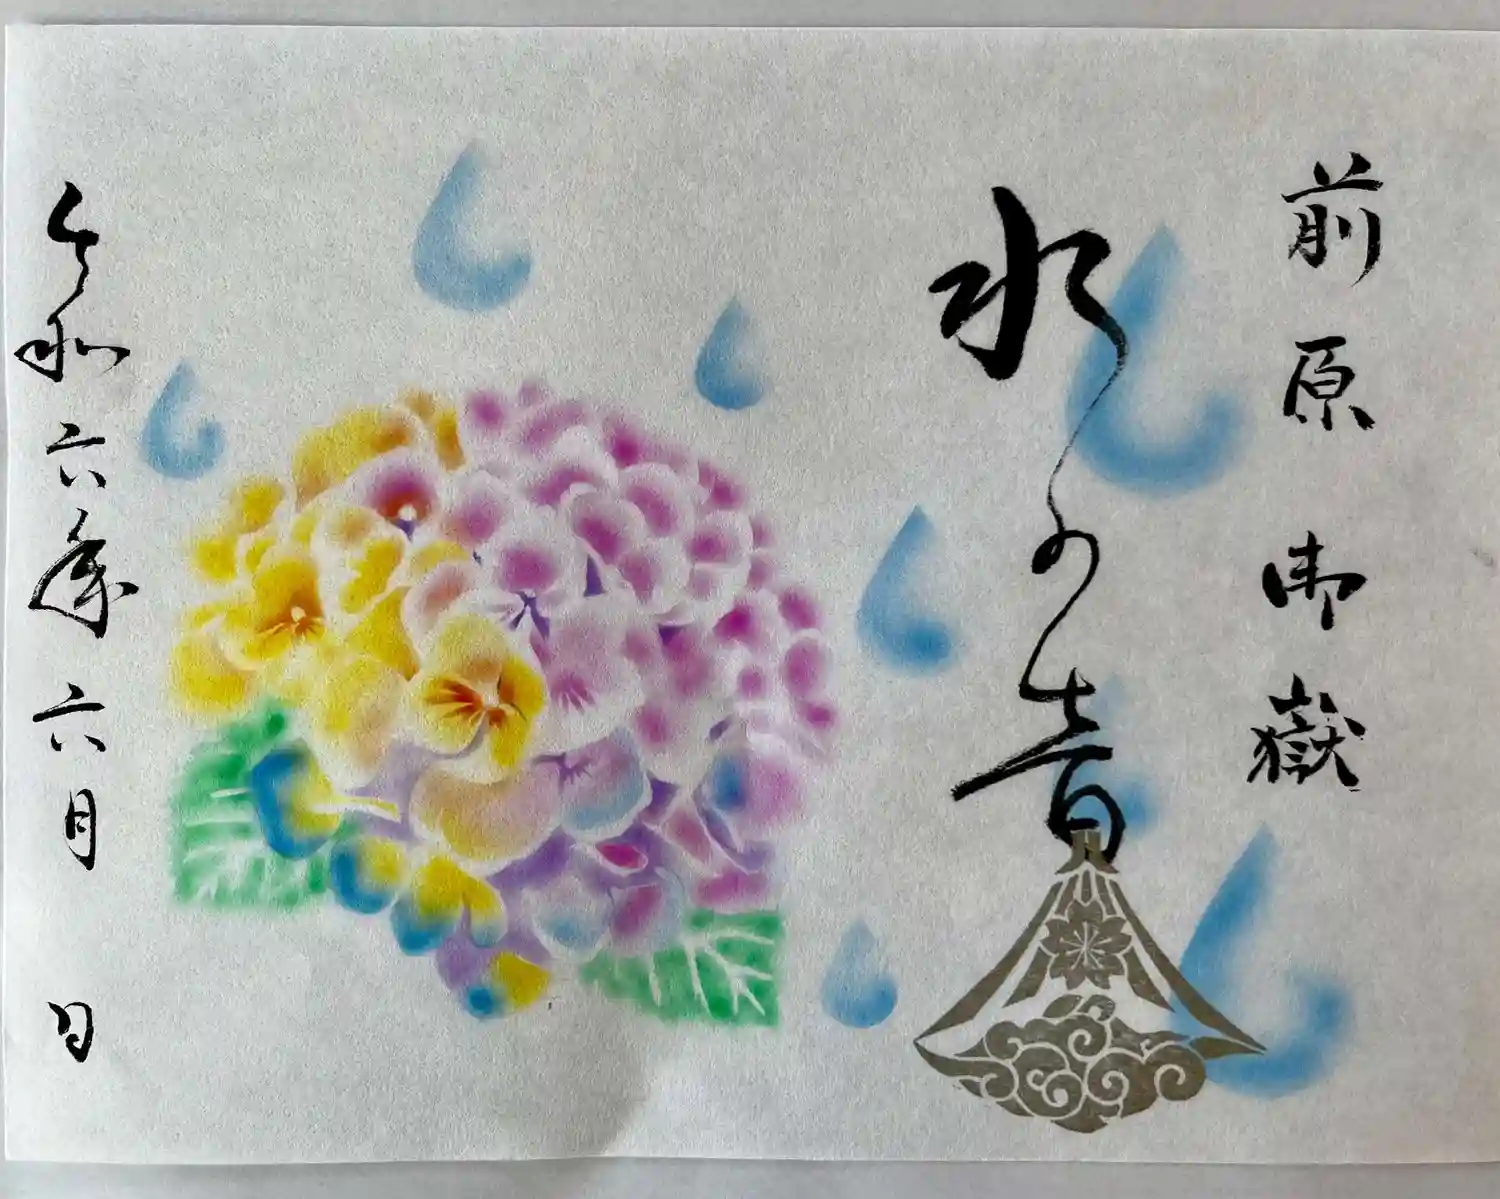 前原御嶽
水の音
令和六年六月 日